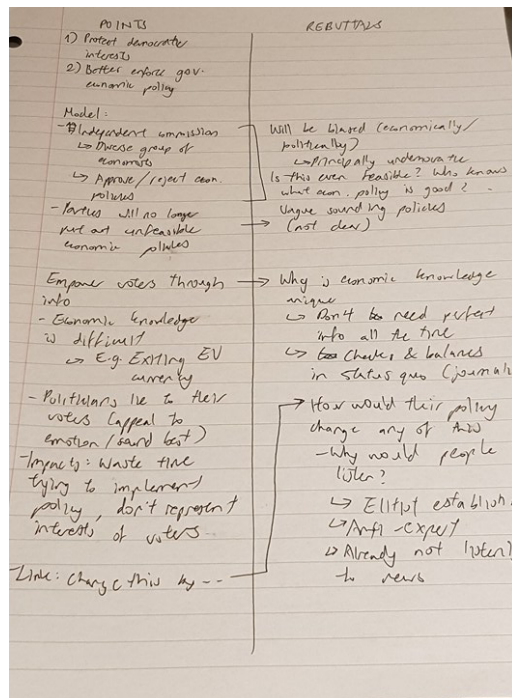 POINTS
1) Protect democratic
interests
2) Better enforce gov.
economic policy
Model:
- Independent commission
↳ Diverse group of
economists
↳ Approve/reject econ.
policies
- Parties will no longer
put out unfeasible
economic policies
Empower voters through
info
- Economic knowledge
is difficult
↳ E.g. Exiting EU
currency
- Politicians lie to their
voters (appeal to
emotion/sound best)
- Impacts: Waste time
trying to implement
policy, don't represent
interests of voters
- Link: change this by --
REBUTTALS
Will be biased (economically/
politically)
↳ Principally undemocratic
Is this even feasible? Who knows
what econ. policy is good?
Vague sounding policies
(not clear)
Why is economic knowledge
unique
↳ Don't need perfect
info all the time
↳ Checks & balances
in status quo (journali
How would their policy
change any of this
- Why would people
listen?
↳ Elitist establish.
↳ Anti-expert
↳ Already not listen
to news